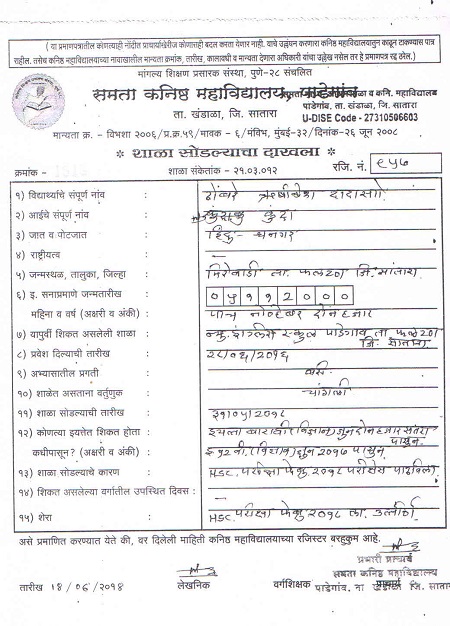 ( या प्रमाणपत्रातील कोणत्याही नोंदीत प्राचार्याखेरीज कोणासही बदल करता येणार नाही. याचे उल्लंघन करणारा कनिष्ठ महाविद्यालयातून काढून टाकण्यास पात्र
राहील. तसेच कनिष्ठ महाविद्यालयाच्या नावाखालील मान्यता क्रमांक, तारीख, कालावधी व मान्यता देणारा अधिकारी यांचा उल्लेख नसेल तर हे प्रमाणपत्र रद्द ठरेल.)
मांगल्य शिक्षण प्रसारक संस्था, पुणे-२८ संचलित
समता कनिष्ठ महाविद्यालय, पाडेगांव
ता. खंडाळा, जि. सातारा
व कनि. महाविद्यालय
पाडेगांव, ता. खंडाळा, जि. सातारा
U-DISE Code - 27310506603
मान्यता क्र. - विभशा २००६/प्र.क्र.५९/मावक - ६/मंविभ, मुंबई-३२/दिनांक-२६ जून २००८
* शाळा सोडल्याचा दाखला *
क्रमांक -
शाळा संकेतांक - २१.०३.०१२
रजि. नं. ९५७
१) विद्यार्थ्याचे संपूर्ण नांव : दादासो
२) आईचे संपूर्ण नांव :
३) जात व पोटजात : हिंदु - धनगर
४) राष्ट्रीयत्व : –
५) जन्मस्थळ, तालुका, जिल्हा : मिरेवाडी ता. फलटण जि. सातारा
६) इ. सनाप्रमाणे जन्मतारीख : ०५११२०००
महिना व वर्ष (अक्षरी व अंकी) : पाच नोव्हेंबर दोन हजार
७) यापुर्वी शिकत असलेली शाळा : न्यु इंग्लिश स्कुल पाडेगाव ता फलटण
जि. सातारा
८) प्रवेश दिल्याची तारीख : २८/०६/२०१६
९) अभ्यासातील प्रगती : बरी
१०) शाळेत असताना वर्तुणुक : चांगली
११) शाळा सोडल्याची तारीख : ३१/०५/२०१८
१२) कोणत्या इयत्तेत शिकत होता : इयत्ता बारावी (विज्ञान) जुन दोन हजार सतरा
पासुन
कधीपासून ? (अक्षरी व अंकी) : इ १२ वी. (विज्ञान) जुन २०१७ पासुन
१३) शाळा सोडल्याचे कारण : HSC. परीक्षा फेब्रु. २०१८ परीक्षेस पाठविला
१४) शिकत असलेल्या वर्गातील उपस्थित दिवस : –
१५) शेरा : HSC. परीक्षा फेब्रु २०१८ ला. उत्तीर्ण
असे प्रमाणित करण्यात येते की, वर दिलेली माहिती कनिष्ठ महाविद्यालयाच्या रजिस्टर बरहुकूम आहे.
प्रभारी प्राचार्य
समता कनिष्ठ महाविद्यालय
तारीख 18/06/2018 लेखनिक वर्गशिक्षक पाडेगांव, ता खंडाळा जि. सातारा